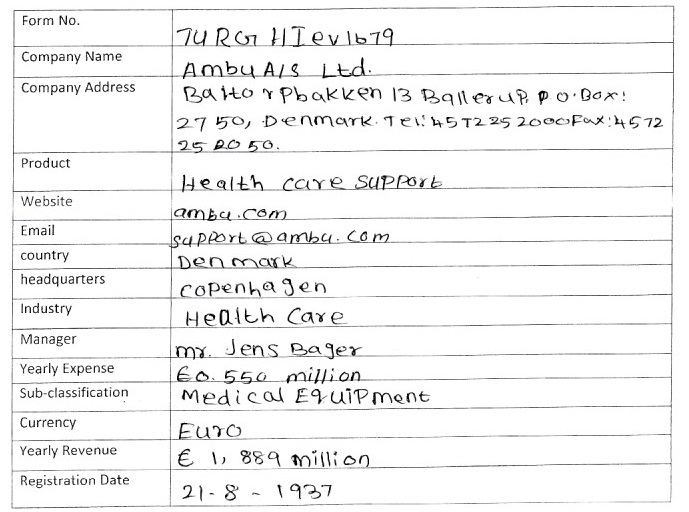 Form No.
7URGHIev1679
Company Name
Ambu A/S Ltd.
Company Address
Baltorpbakken 13 Ballerup, P.O.Box:
2750, Denmark. Tel:4572252000Fax:4572
25 2050.
Product
Health care support
Website
ambu.com
Email
support@ambu.com
country
Denmark
headquarters
copenhagen
Industry
Health Care
Manager
mr. Jens Bager
Yearly Expense
€0.550 million
Sub-classification
Medical Equipment
Currency
Euro
Yearly Revenue
€ 1,889 million
Registration Date
21-8-1937